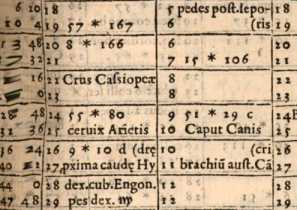 6 10 18 5 pedes post.lepo- 18
10 4 19 57 * 167 6 (ris 19
1 3 48 20 8 * 166 6 20
7 32 21 7 15 * 106 21
16 21 Crus Cassiopeæ 8
23 8 23
28 48 24 55 * 80 9 51 * 29 c 24
31 36 25 ceruix Arietis 10 Caput Canis 25
36 24 26 9 * 10 d (drę 10 (cri 26
40 21 27 pxima caudę Hy 11 brachiū aust.Cā 27
44 0 28 dex.cub.Engon. 12 28
47 48 29 pes dex. ♍ 12 29